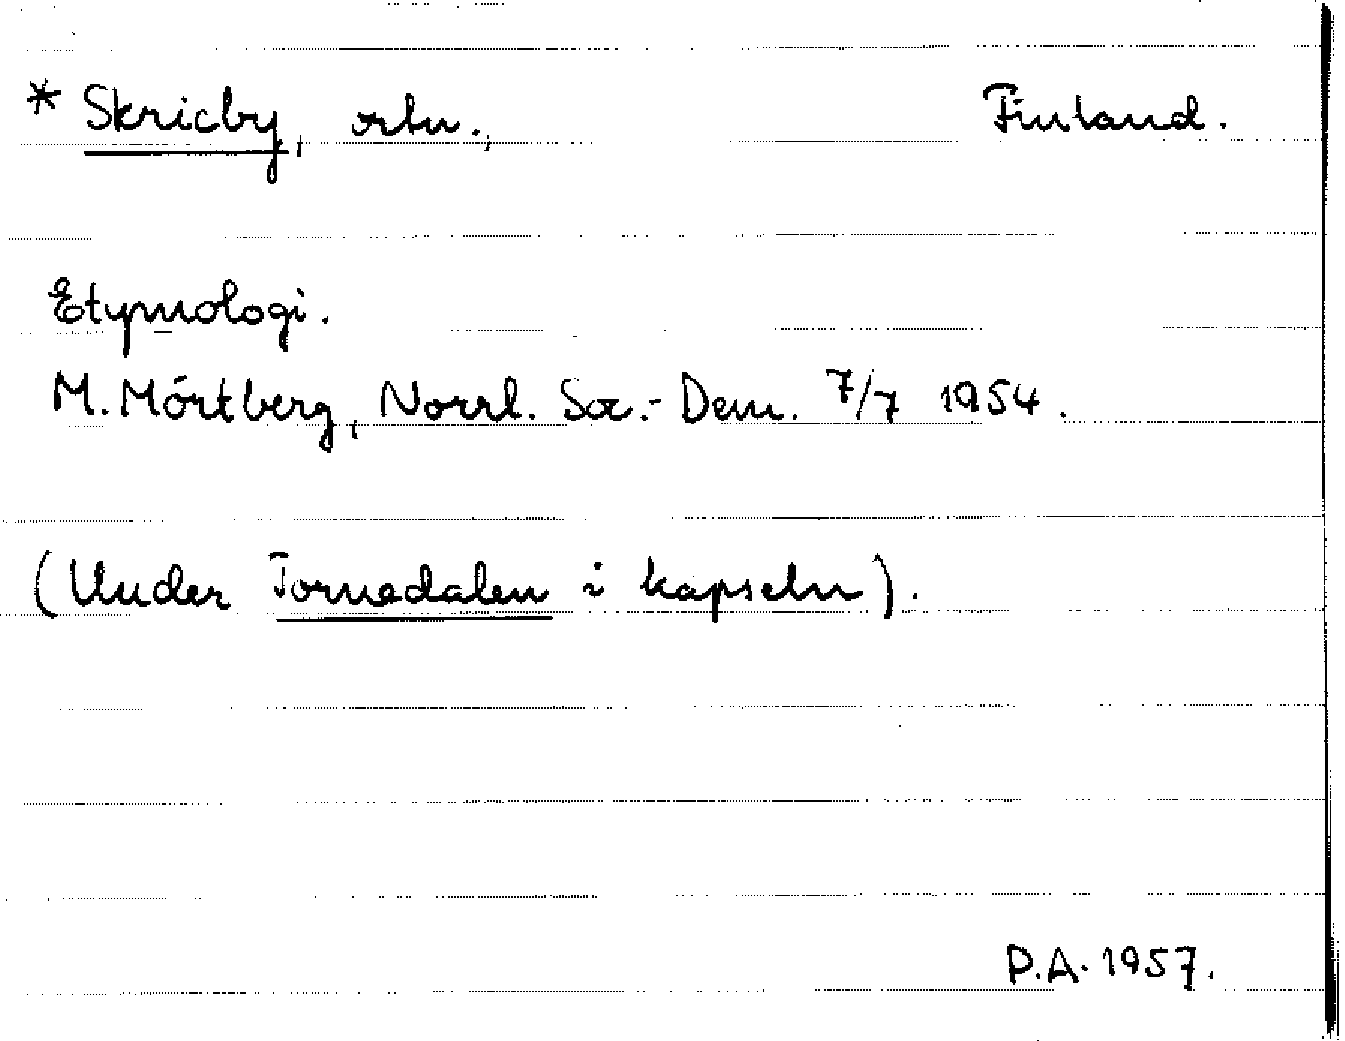 * Skricby, ortn., Finland.
Etymologi.
M. Mörtberg, Norrl. Soc.- Dem. 7/7 1954.
(Under Tornedalen i kapseln).
P.A. 1957.